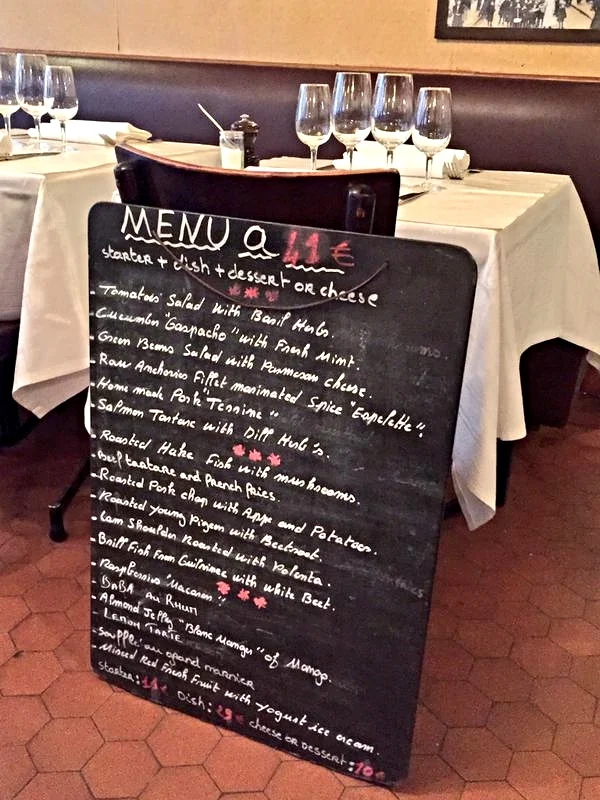 MENU a 41 €
starter + dish + dessert OR cheese
- Tomatoes Salad with Basil Herbs.
- Cucumber "Gaspacho" with Fresh Mint.
- Green Beans Salad with Parmesan cheese.
- Raw Anchovies Fillet marinated Spice "Espelette".
- Home made Pork "Terrine"
- Salmon Tartare with Dill Herb's.
- Roasted Hake Fish with mushrooms.
- Beef tartare and french fries.
- Roasted Pork chop with Apple and Potatoes.
- Roasted Young Pigeon with Beetroot.
- Lam Shoulder Roasted with Polenta.
- Brill Fish From Guilvinec with white Beet.
- Raspberries "Macaron"
- BABA Au Rhum
- Almond Jelly "Blanc Manger" of Mango.
- LEMON TARTE
- Soufflé au grand marnier
- Minced Red Fresh Fruit with yogurt ice cream.
starter: € Dish: € cheese OR DESSERT: 10€